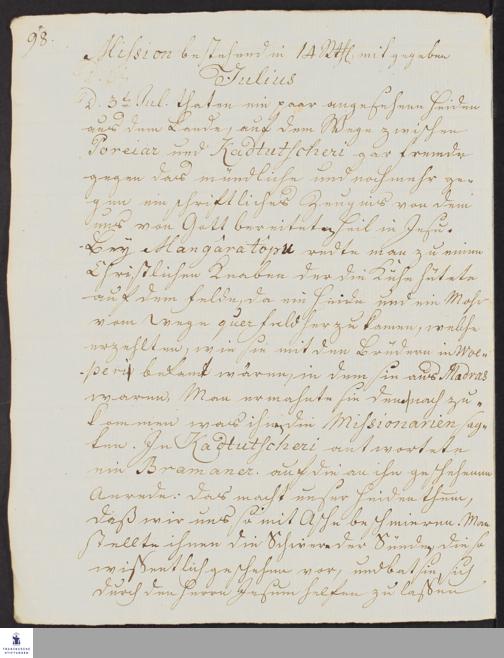 98.
Mission bestehend in 14 Rthl. mitgegeben
Julius
D. 3t. Jul. thaten ein paar angesehene Heiden
aus dem Lande, auf dem Wege zwischen
Poreiar und Kadtutscheri gar fremde
gegen das mündliche und noch mehr ge-
gen ein schriftliches Zeugnis von dem
uns von Gott bereiteten Heil in Jesu.
Bey Mangaratópu redte man zu einem
Christlichen Knaben der die Kühe hütete
auf dem Felde, da ein Heide und ein Mohr
vom Wege querfeld herzu kamen, welche
erzehlten, wie sie mit den Brüdern in Woe-
peri bekant wären, in dem sie aus Madras
waren. Man ermahnte sie dem nach zu-
kommen was ihnen die Missionarien sag-
ten. In Kadtutscheri antwortete
ein Bramaner auf die an ihn geschehene
Anrede: das macht unser Heidenthum,
daß wir uns so mit Asche beschmieren. Man
stellte ihnen die Schwere der Sünden, die so
wissentlich geschehen vor, und bat sie, sich
durch den Herrn Jesum helfen zu lassen
FRANCKESCHE
STIFTUNGEN